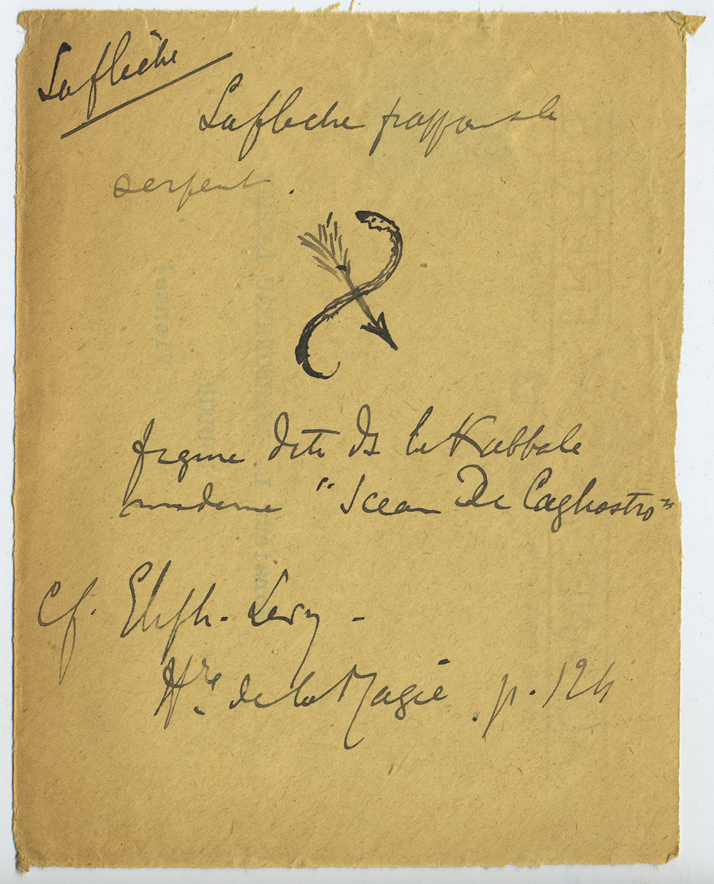 La flèche
La flèche frappant le
serpent.
figure dite ds la Kabbale
moderne "Sceau De Cagliostro"
Cf. Eliph. Levy -
Hre de la Magie. p. 124